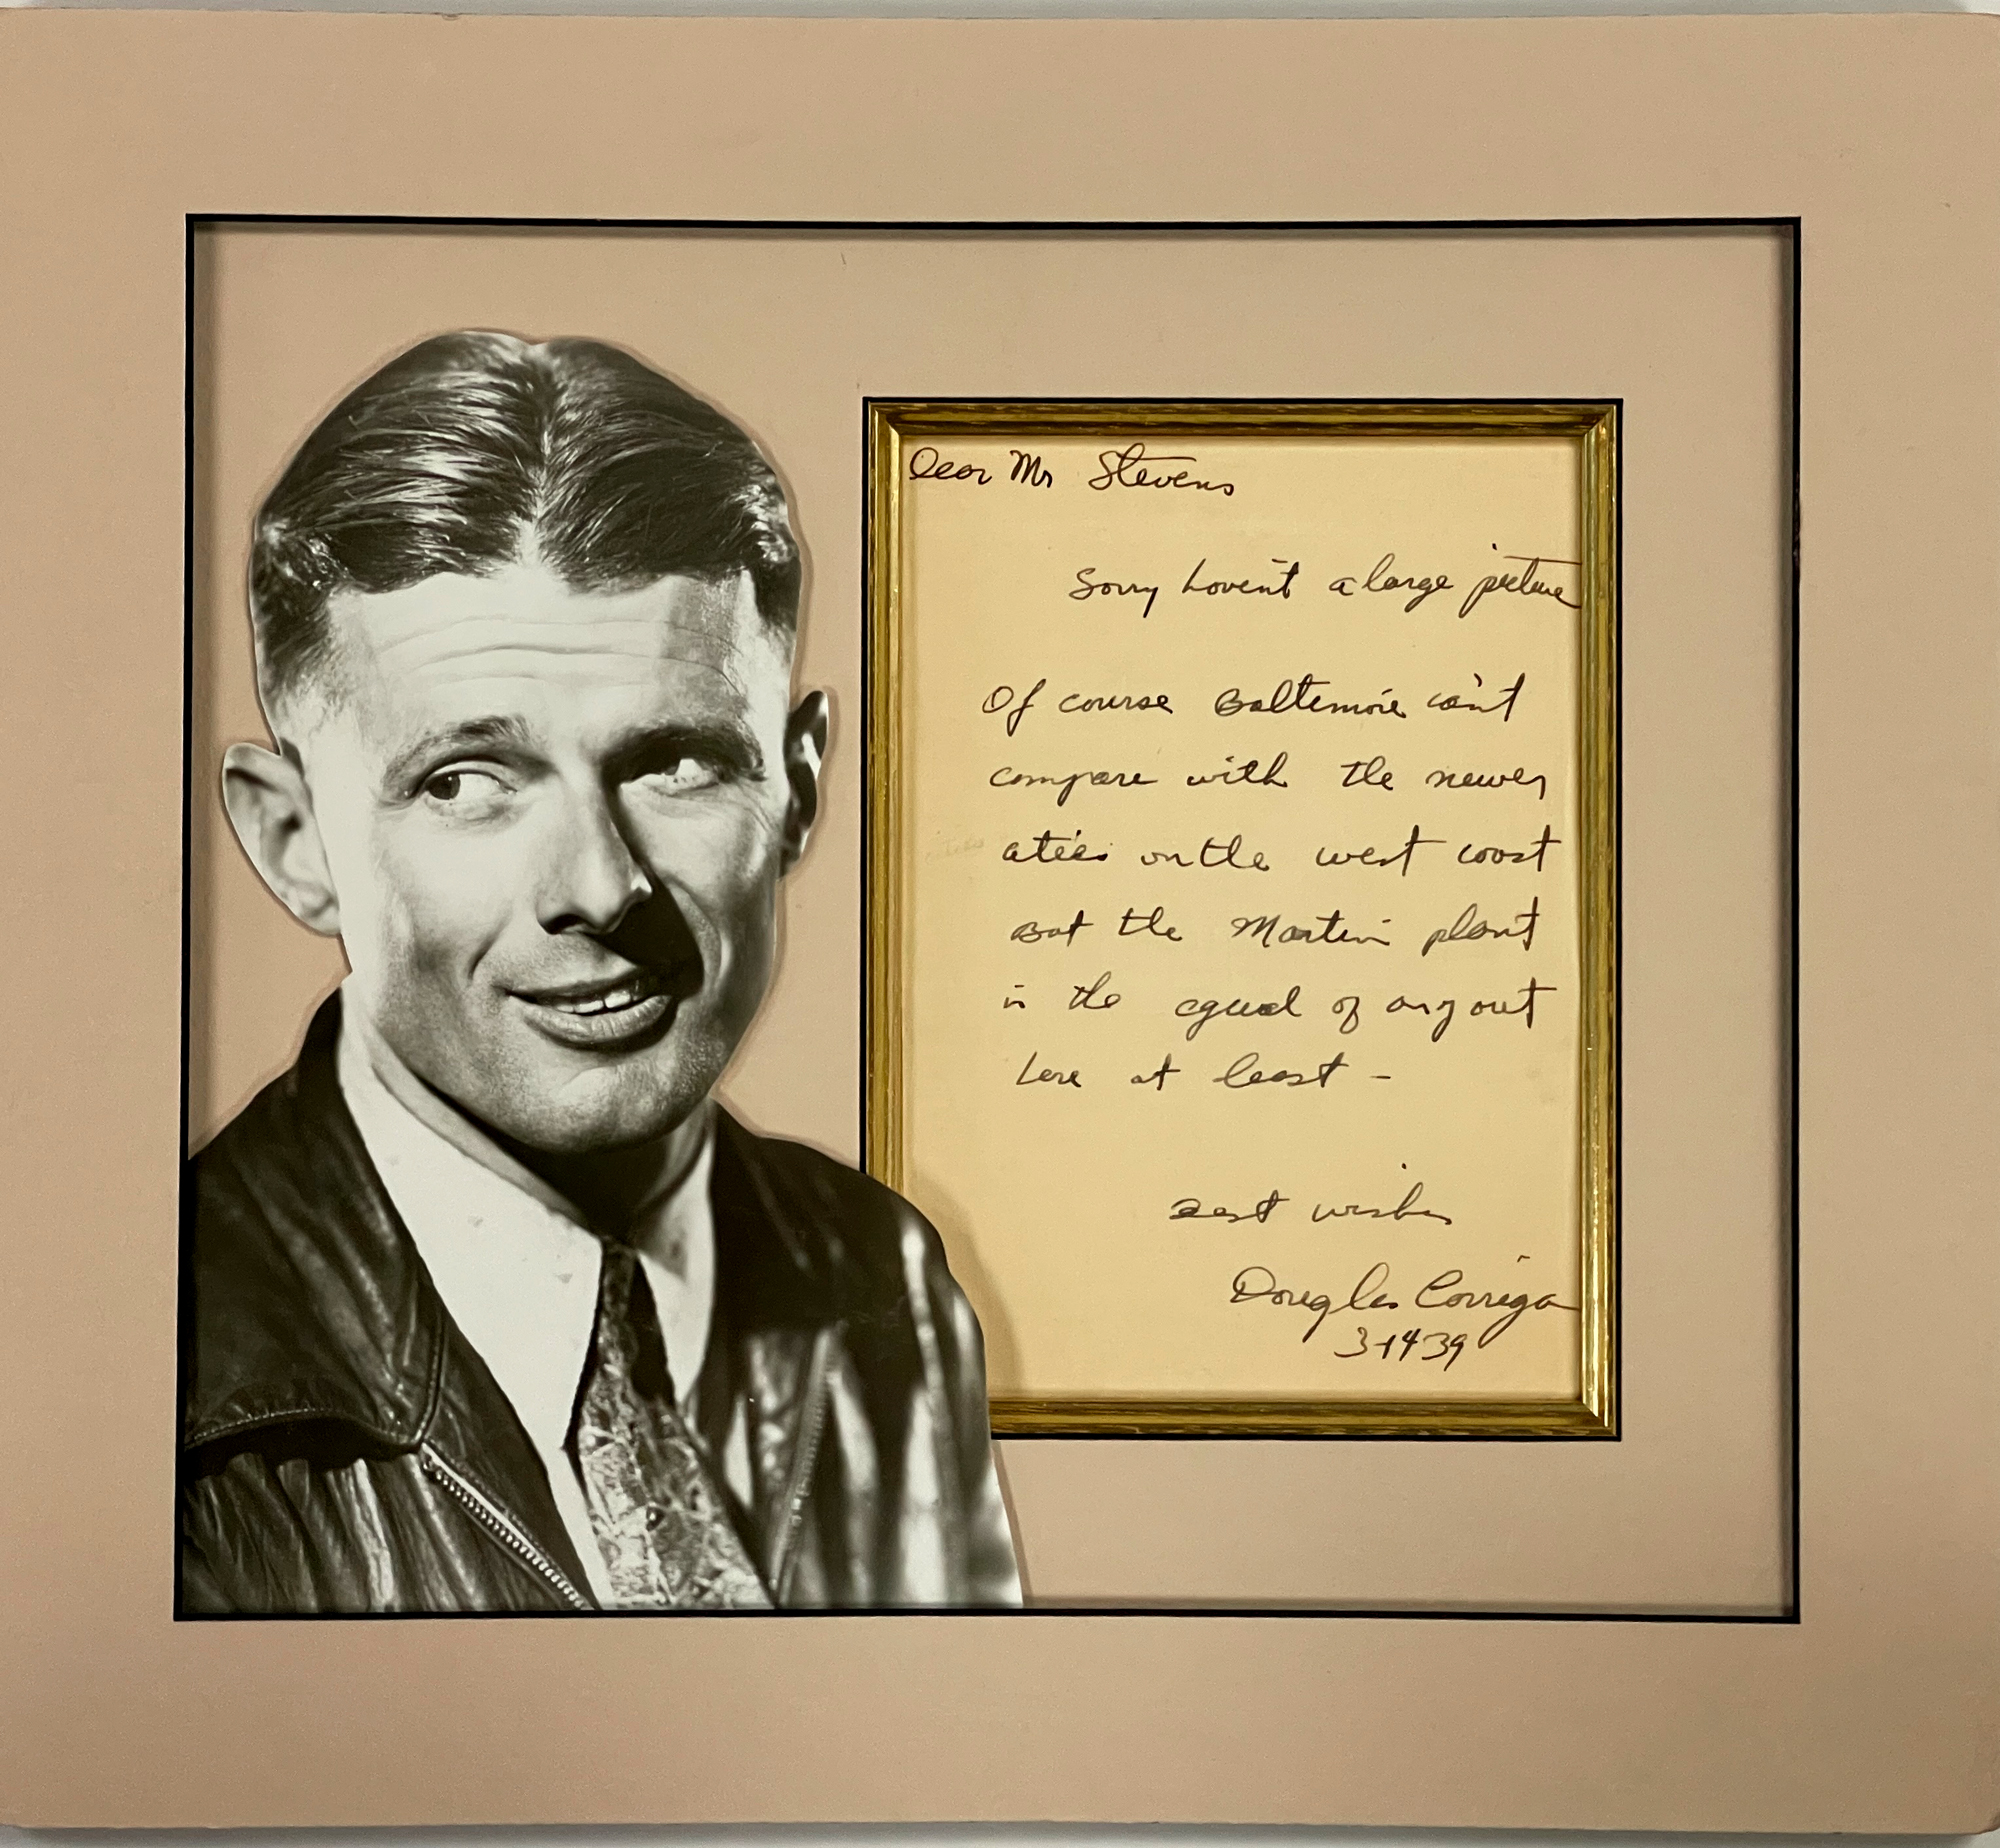 Dear Mr Stevens
Sorry haven't a large picture
Of course Baltimore can't
compare with the newer
cities on the west coast
But the Martin plant
is the equal of any out
here at least -
Best wishes
Douglas Corrigan
3-14-39